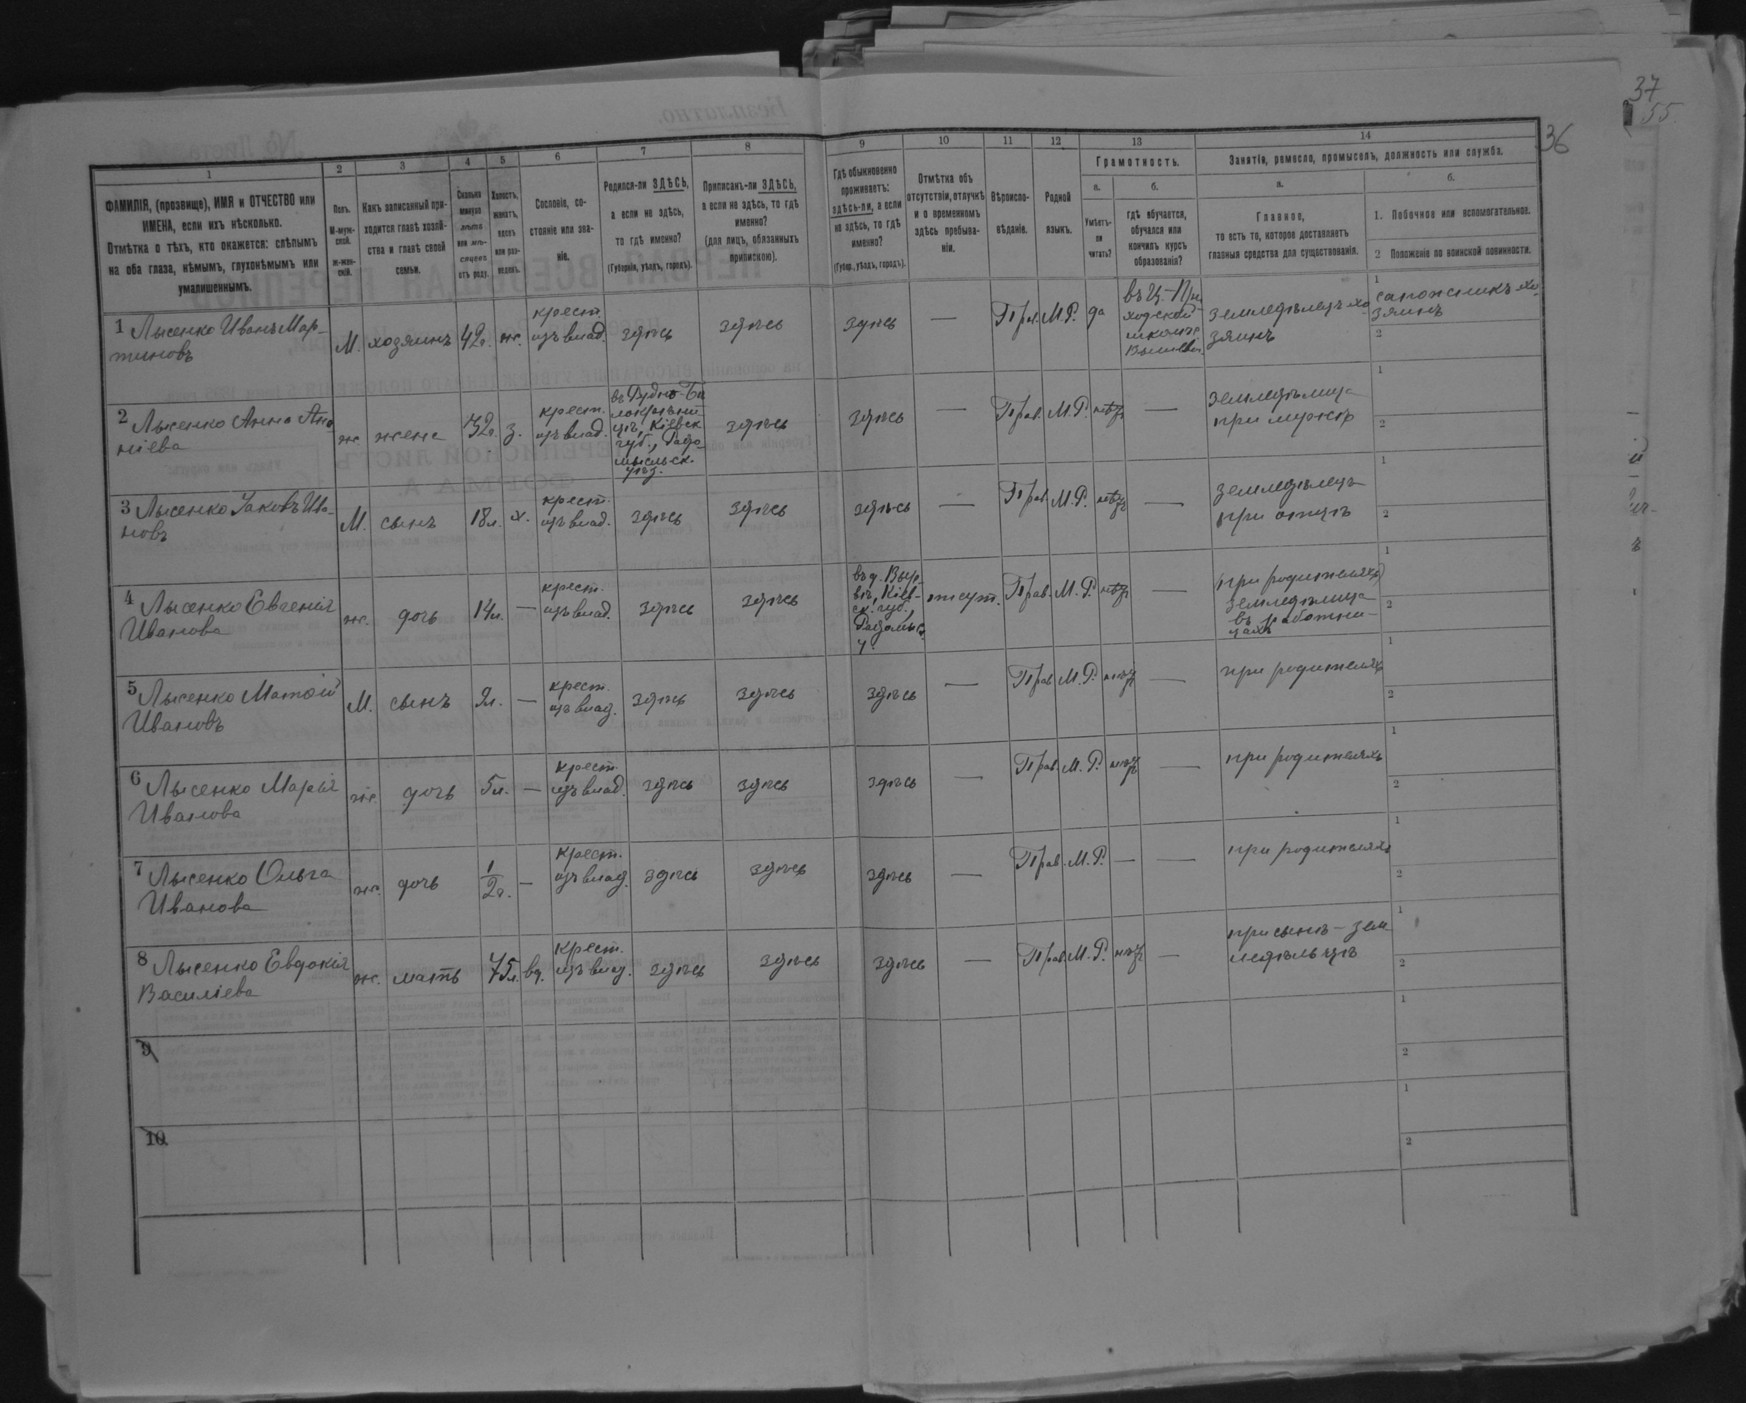 37
55
36
1 2 3 4 5 6 7 8 9 10 11 12 13 14
ФАМИЛІЯ, (прозвище), ИМЯ и ОТЧЕСТВО или
ИМЕНА, если ихъ нѣсколько.
Отмѣтка о тѣхъ, кто окажется: слѣпымъ
на оба глаза, нѣмымъ, глухонѣмымъ или
умалишеннымъ.
Полъ.
М-муж-
ской.
Ж-жен-
скій.
Какъ записанный при-
ходится главѣ хозяй-
ства и главѣ своей
семьи.
Сколько
минуло
лѣтъ
или мѣ-
сяцевъ
отъ роду.
Холостъ,
женатъ,
вдовъ
или раз-
веденъ.
Сословіе, со-
стояніе или зва-
ніе.
Родился-ли ЗДѢСЬ,
а если не здѣсь,
то гдѣ именно?
(Губернія, уѣздъ, городъ).
Приписанъ-ли ЗДѢСЬ,
а если не здѣсь, то гдѣ
именно?
(для лицъ, обязанныхъ
припискою).
Гдѣ обыкновенно
проживаетъ:
здѣсь-ли, а если
не здѣсь, то гдѣ
именно?
(Губер., уѣздъ, городъ).
Отмѣтка объ
отсутствіи, отлучкѣ
и о временномъ
здѣсь пребыва-
ніи.
Вѣроиспо-
вѣданіе.
Родной
языкъ.
Грамотность.
а.
Умѣетъ-
ли
читать?
б.
гдѣ обучается,
обучался или
кончилъ курсъ
образованія?
Занятія, ремесло, промыселъ, должность или служба.
а.
Главное,
то есть то, которое доставляетъ
главныя средства для существованія.
б.
1. Побочное или вспомогательное.
2 Положеніе по воинской повинности.
1 Лысенко Иванъ Мар-
тиновъ
М. хозяинъ 42г. ж.
крест.
изъ влад.
здѣсь здѣсь здѣсь — Прав. М.Р. да
въ Ц.-При
ходской
школѣ
земледѣлецъ хо
зяинъ
1
сапожникъ хо-
зяинъ
2
2 Лысенко Анна Ана
ніева
ж. жена 32г. з.
крест.
изъ влад.
Кіевск
губ., Радо-
мысльск.
уѣз.
здѣсь здѣсь — Прав. М.Р. нѣтъ —
земледѣлица
при мужѣ
1
2
3 Лысенко Яковъ Ива-
новъ
М. сынъ 18л. х.
крест.
изъ влад.
здѣсь здѣсь здѣсь — Прав. М.Р. нѣтъ —
земледѣлецъ
при отцѣ
1
2
4 Лысенко Евгенія
Иванова
ж. дочь 14л. —
крест.
изъ влад.
здѣсь здѣсь
въ д. Выр-
вѣ, Кіев-
ск. губ.,
Радомыс.
у.
отсут. Прав. М.Р. нѣтъ —
при родителяхъ
земледѣлица
въ работни-
цахъ
1
2
5 Лысенко Матѳій
Ивановъ
М. сынъ 9л. —
крест.
изъ влад.
здѣсь здѣсь здѣсь — Прав. М.Р. нѣтъ — при родителяхъ
1
2
6 Лысенко Марія
Иванова
ж. дочь 5л. —
крест.
изъ влад.
здѣсь здѣсь здѣсь — Прав. М.Р. нѣтъ — при родителяхъ
1
2
7 Лысенко Ольга
Иванова
ж. дочь 1/2г. —
крест.
изъ влад.
здѣсь здѣсь здѣсь Прав. М.Р. — — при родителяхъ
1
2
8 Лысенко Евдокія
Василіева
ж. мать 75л. вд.
крест.
изъ влад.
здѣсь здѣсь здѣсь — Прав. М.Р. нѣтъ —
при сынѣ - зем
ледѣльцѣ
1
2
9
1
2
10
1
2